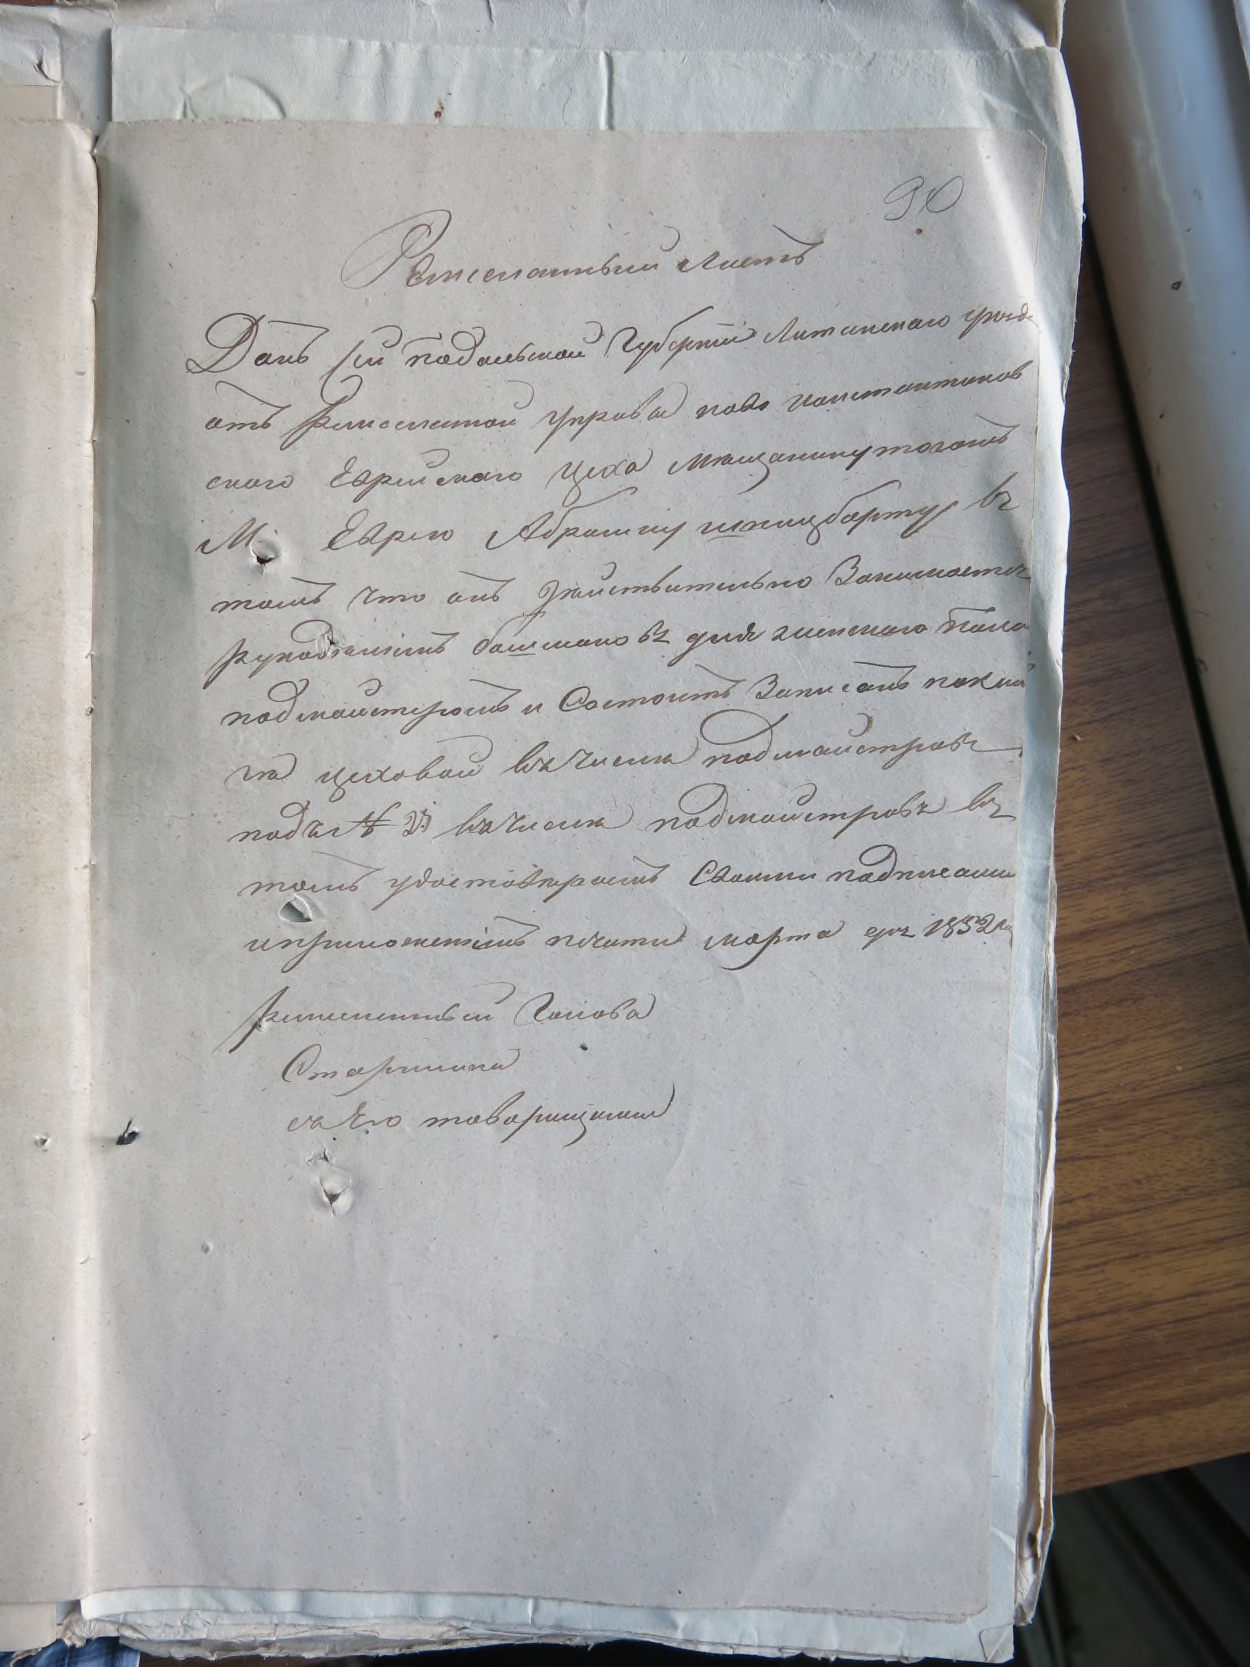 90
Ремесленный Листъ
Данъ сей Подольской Губерніи Литинскаго уезда
отъ ремесленой управы ново константинов
ского Еврейскаго цеха мещанину тогожъ
М. Еврею Абрашку Шпицбарту въ
томъ что онъ действительно Занимается
рукоделіемъ башмаковъ для женского пола
подмайстромъ и Состоитъ Записанъ по книг
на цеховой въ числе подмайстровъ
подъ № въ числе подмайстровъ въ
томъ удостоверяемъ Своими подписами
и приложеніемъ печати марта дня 1852 г
ремесленный Голова
Старшина
съ Его товарищами